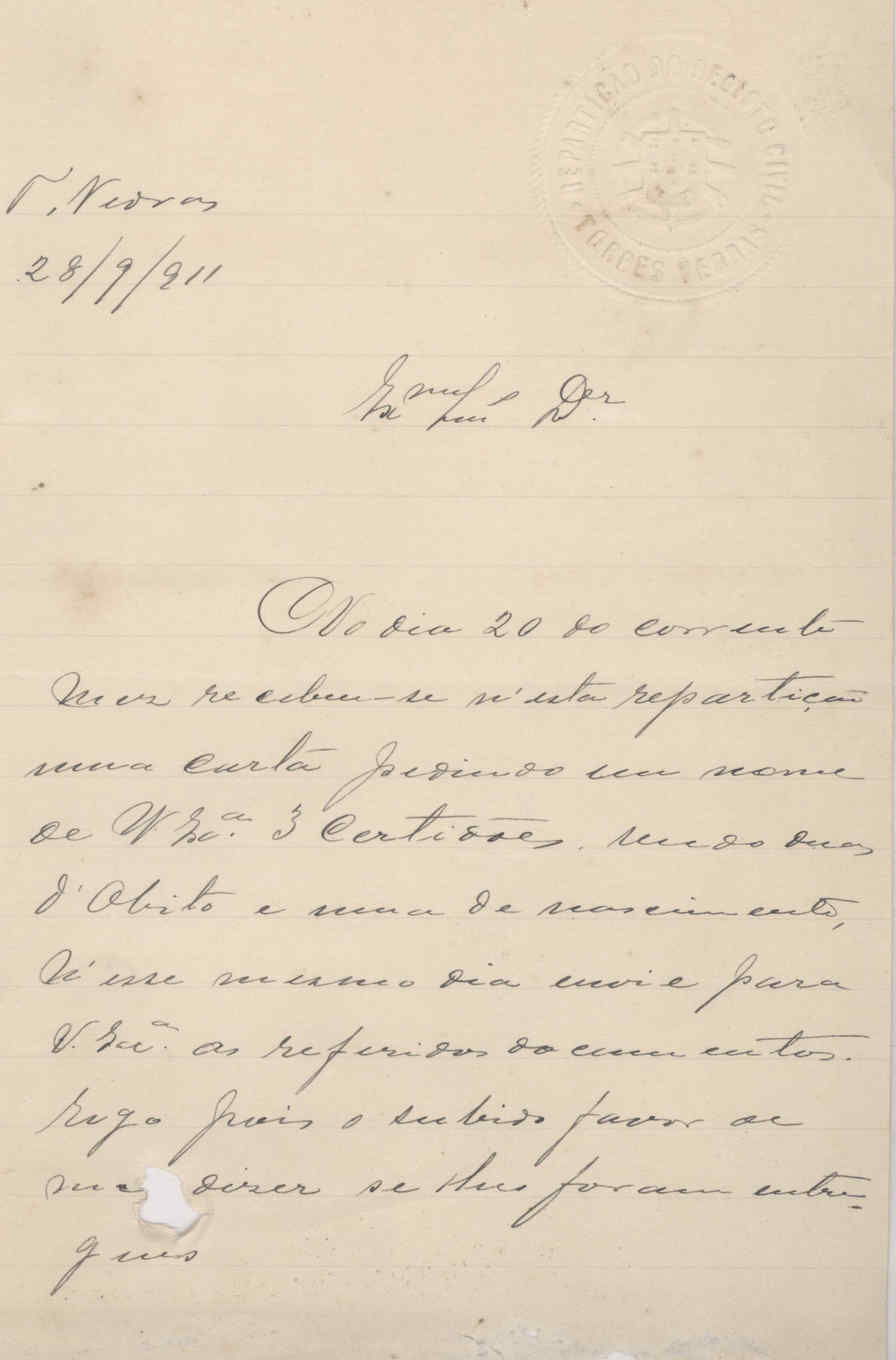 REPARTIÇÃO DO REGISTO CIVIL
TORRES VEDRAS
T. Vedras
28/9/911
Exmo Dr.
No dia 20 do corrente
mez recebeu-se n'esta repartição
uma carta pedindo em nome
de V. Exa. 3 Certidões, sendo duas
d'Obito e uma de nascimento,
N'esse mesmo dia envie para
V. Exa. os referidos documentos.
Rogo pois o subido favor de
me dizer se lhes foram entre-
gues